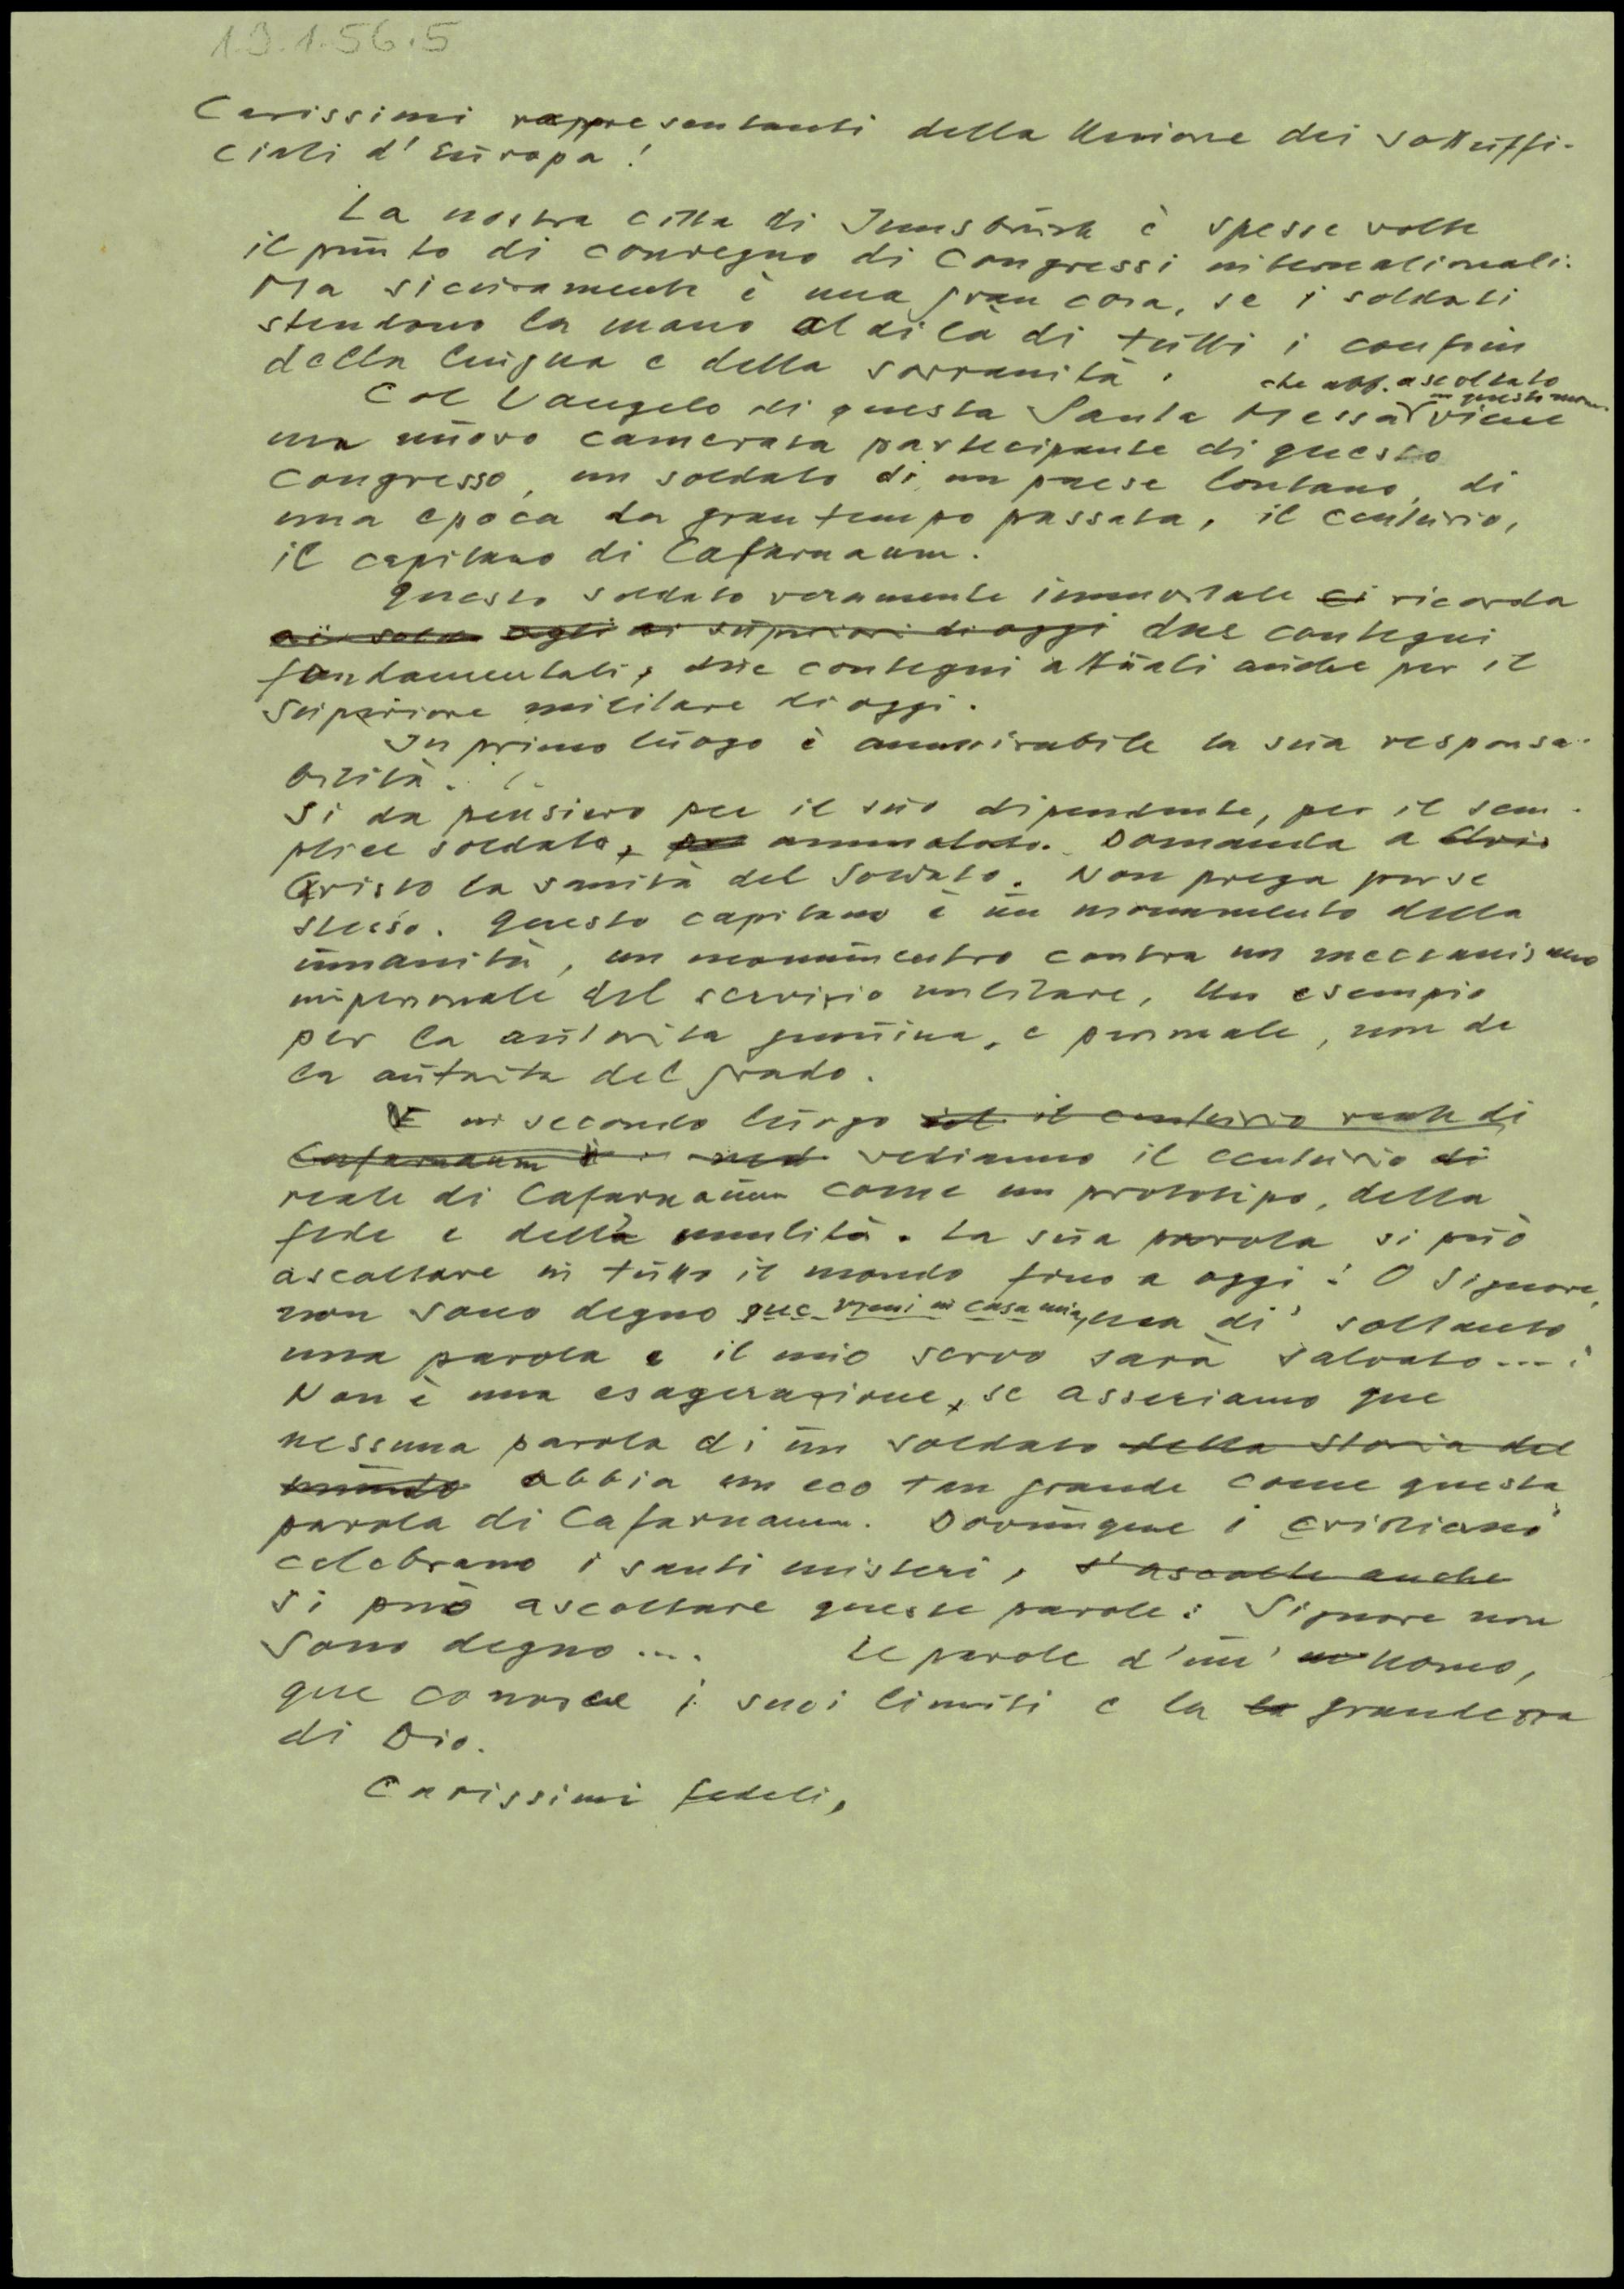 19.1.56.5
Carissimi rappresentanti della Unione dei sottuffi-
ciali d'Europa!
La nostra citta di Innsbruck è spesse volte
il punto di convegno di Congressi internationali.
Ma sicuramente è una gran cosa, se i soldati
stendono la mano al di là di tutti i confini
della lingua e della sovranità.
che abb. ascoltato
in questo mom.
Col Vangelo di questa Santa Messa viene
un nuovo camerata partecipante di questo
Congresso, un soldato di un paese lontano, di
una epoca da gran tempo passata, il centurio,
il capitano di Cafarnaum.
Questo soldato veramente immortale ci ricorda
ai solda agli ai superiori di oggi due contegni
fondamentali, due contegni attuali anche per il
Superiore militare di oggi.
In primo luogo è ammirabile la sua responsa-
bilità.
Si da pensiero per il suo dipendente, per il sem-
plice soldato, per ammalato. Domanda a Chri
Cristo la sanità del Soldato. Non prega per se
stesso. Questo capitano è un monumento della
umanità, un monumentro contra un meccanismo
impersonale del servizio militare, Un esempio
per la autorita genuina, e personale, non de
la autorita del grado.
E in secondo luogo il centurio reale di
Cafarnaum è vediamo il centurio di
reale di Cafarnaum come un prototipo, della
fede e della umilità. La sua parola si può
ascoltare in tutto il mondo fino a oggi: O Signore,
non sono degno que vieni in casa mia, ma di' soltanto
una parola e il mio servo sarà salvato...:
Non è una esagerazione, se asseriamo que
nessuna parola di un soldato della storia del
mundo abbia un eco tan grande come questa
parola di Cafarnaum. Dovunque i cristiani
celebrano i santi misteri, s'ascolta anche
si può ascoltare queste parole: Signore non
sono degno.... Le parole d'un' uomo,
que conosce i suoi limiti e la la grandezza
di Dio.
Carissimi fedeli,